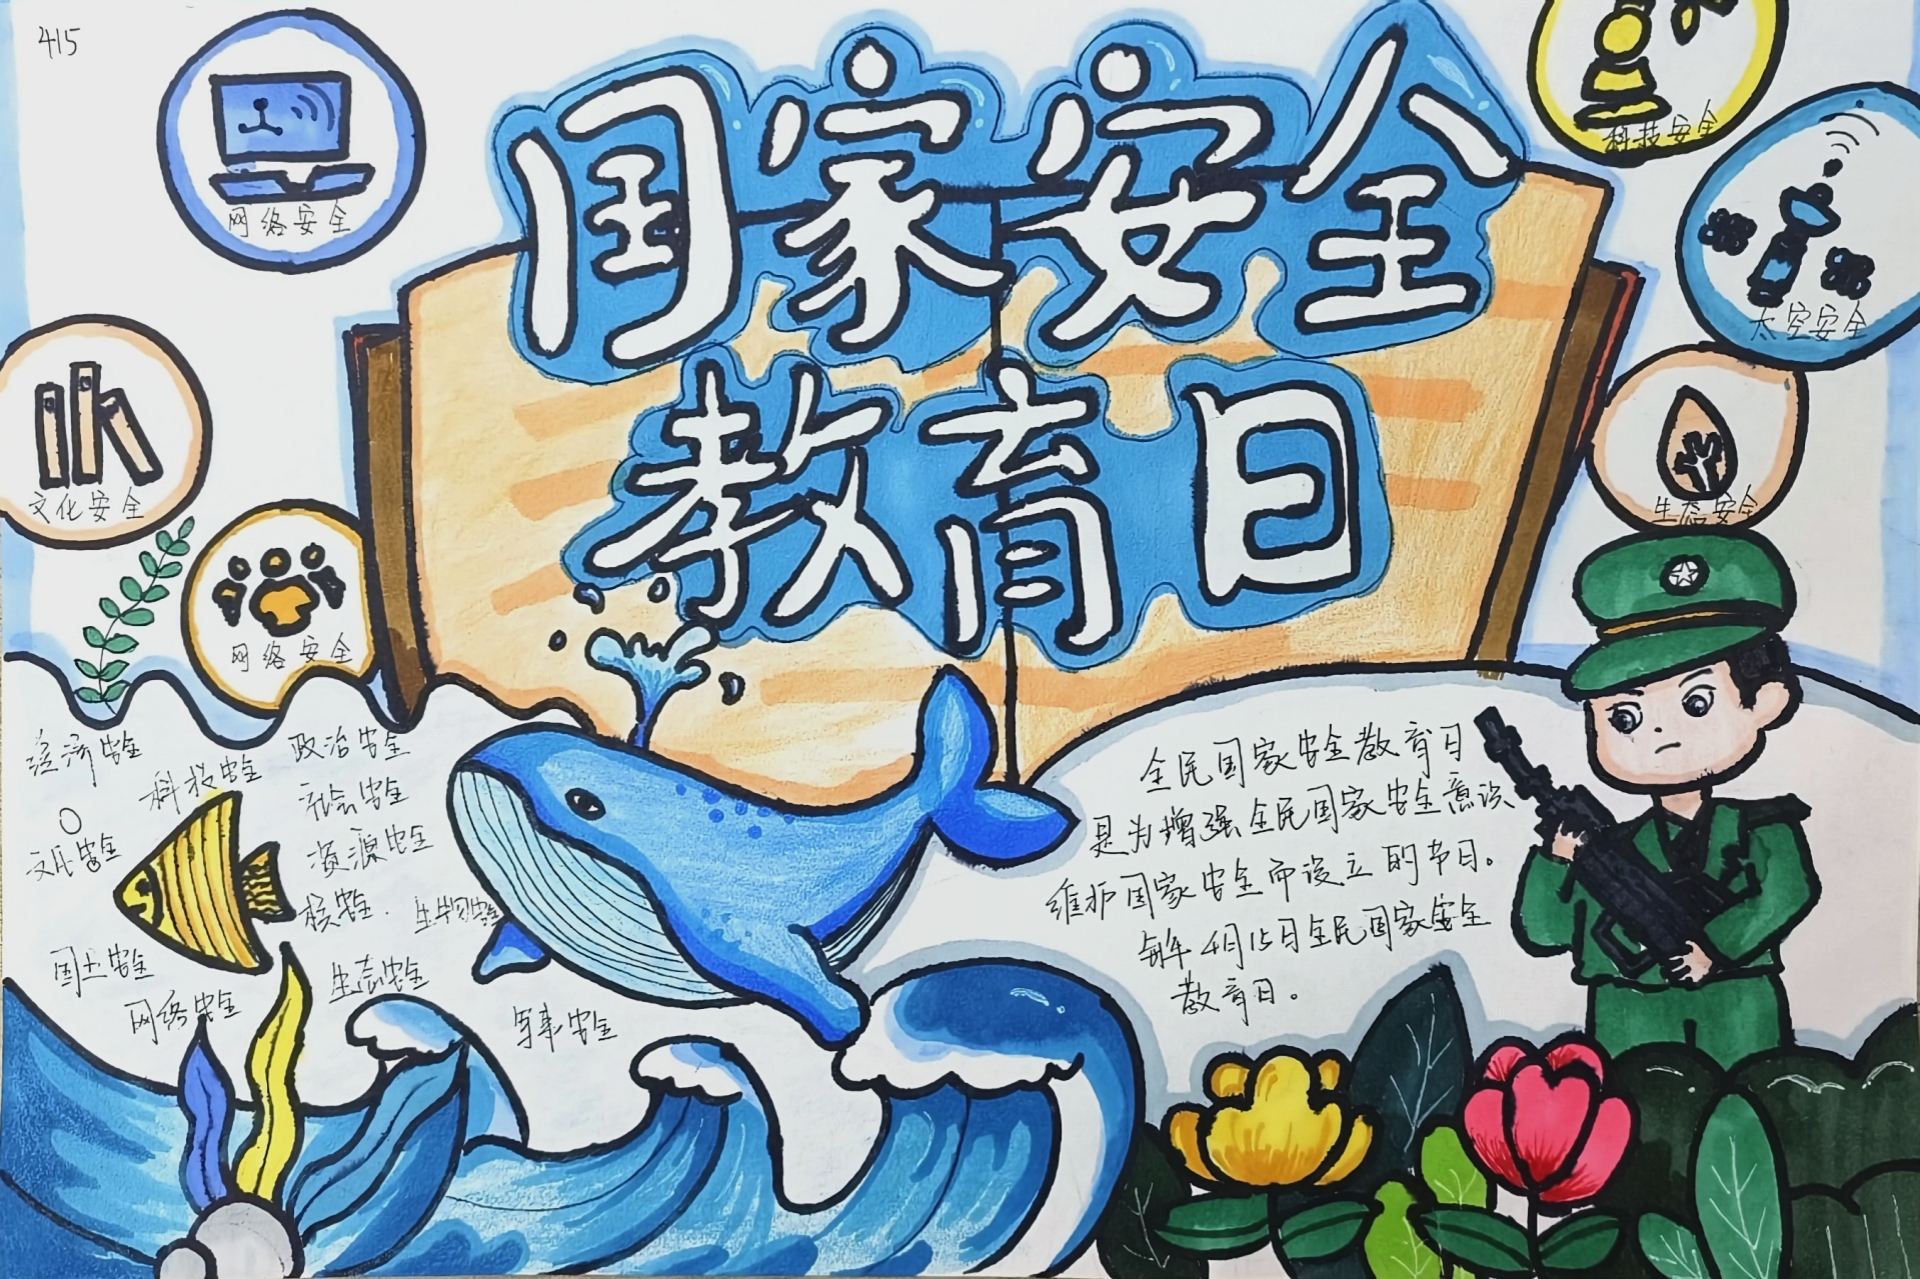 415
国家安全
教育日
网络安全
科技安全
太空安全
文化安全
生态安全
网络安全
经济安全
政治安全
科技安全
社会安全
文化安全
资源安全
核安全.
生物安全
国土安全
生态安全
网络安全
军事安全
全民国家安全教育日
是为增强全民国家安全意识
维护国家安全而设立的节日。
每年4月15日全民国家安全
教育日。